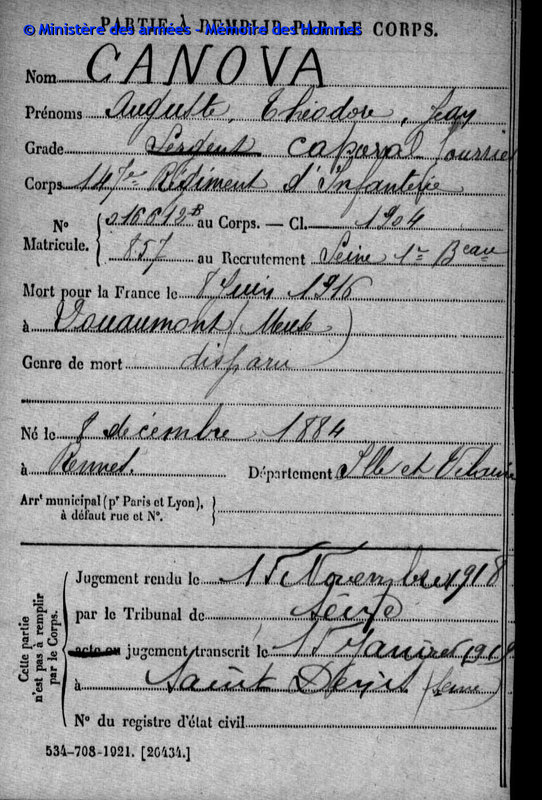 PARTIE À REMPLIR PAR LE CORPS.
© Ministère des armées - Mémoire des Hommes
Nom CANOVA
Prénoms Auguste, Théodore, Jean
Grade Sergent caporal fourrier
Corps 147e Régiment d'Infanterie
No Matricule. 016612B au Corps. — Cl. 1904
857 au Recrutement Seine 1er Beau
Mort pour la France le 8 Juin 1916
à Douaumont (Meuse)
Genre de mort disparu
Né le 8 décembre 1884
à Rennes. Département Ille et Vilaine
Arrt municipal (pr Paris et Lyon),
à défaut rue et No.
Cette partie
n'est pas à remplir
par le Corps.
Jugement rendu le 15 Novembre 1918
par le Tribunal de Seine
acte ou jugement transcrit le 15 Janvier 1919
à Saint Denis (Seine)
No du registre d'état civil
534-708-1921. [26434.]